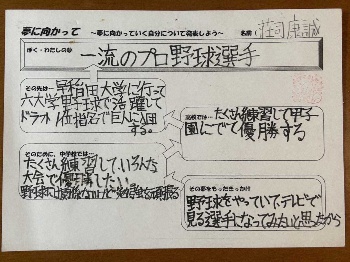 夢に向かって ～夢に向かっていく自分について発表しよう～ 名前 荘司康誠
ぼく・わたしの夢
一流のプロ野球選手
その先は…早稲田大学に行って
六大学野球で活躍して
ドラフト1位指名で巨人に入団
する。
高校では…たくさん練習して甲子
園にでて優勝する
そのために、中学校では…
たくさん練習して、いろんな
大会で優勝したい。
その夢をもったきっかけ
野球をやっていて、テレビで
見る選手になってみたいと思ったから